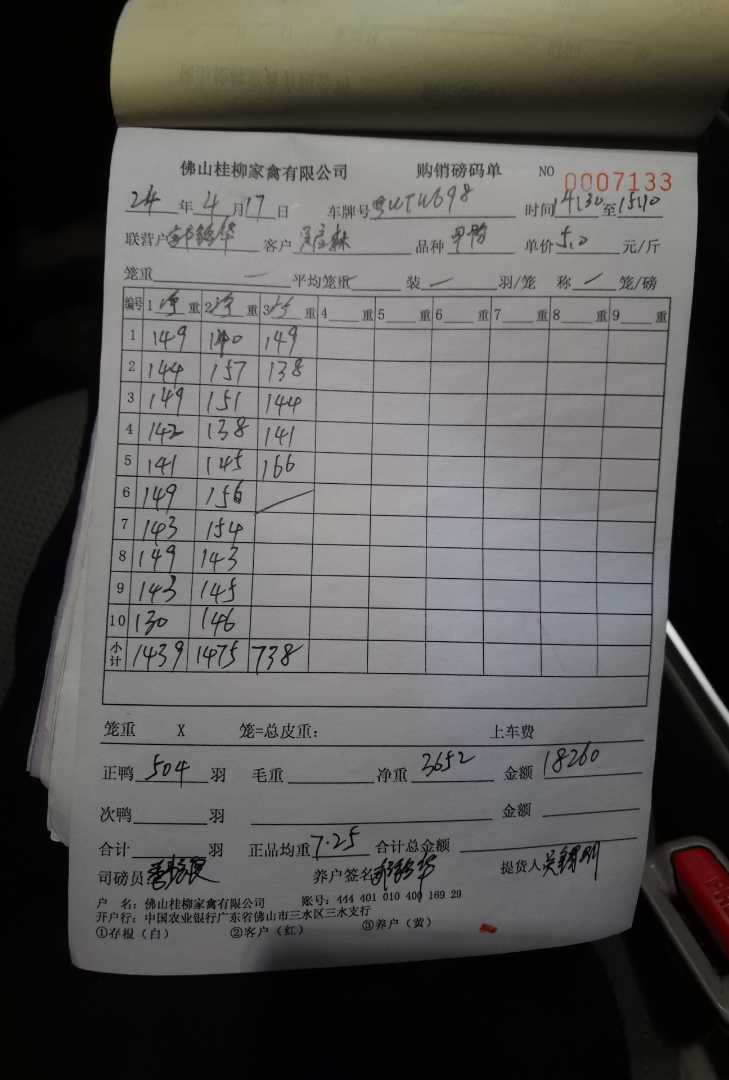 佛山桂柳家禽有限公司 购销磅码单 NO 0007133
24 年 4 月 17 日 车牌号 时间 14:30 至 15:10
联营户 客户 品种 单价 5.0 元/斤
笼重 — 平均笼重 — 装 — 羽/笼 称 — 笼/磅
编号 1 净 重 2 净 重 3 净 重 4 重 5 重 6 重 7 重 8 重 9 重
1 149 140 149
2 144 157 138
3 149 151 144
4 142 138 141
5 141 145 166
6 149 156
7 143 154
8 149 143
9 143 145
10 130 146
小计 1439 1475 738
笼重 X 笼=总皮重： 上车费
正鸭 504 羽 毛重 净重 3652 金额 18260
次鸭 羽 金额
合计 羽 正品均重 7.25 合计总金额
司磅员 养户签名 提货人
户 名：佛山桂柳家禽有限公司 账号：444 401 010 400 169 29
开户行：中国农业银行广东省佛山市三水区三水支行
①存根（白） ②客户（红） ③养户（黄）